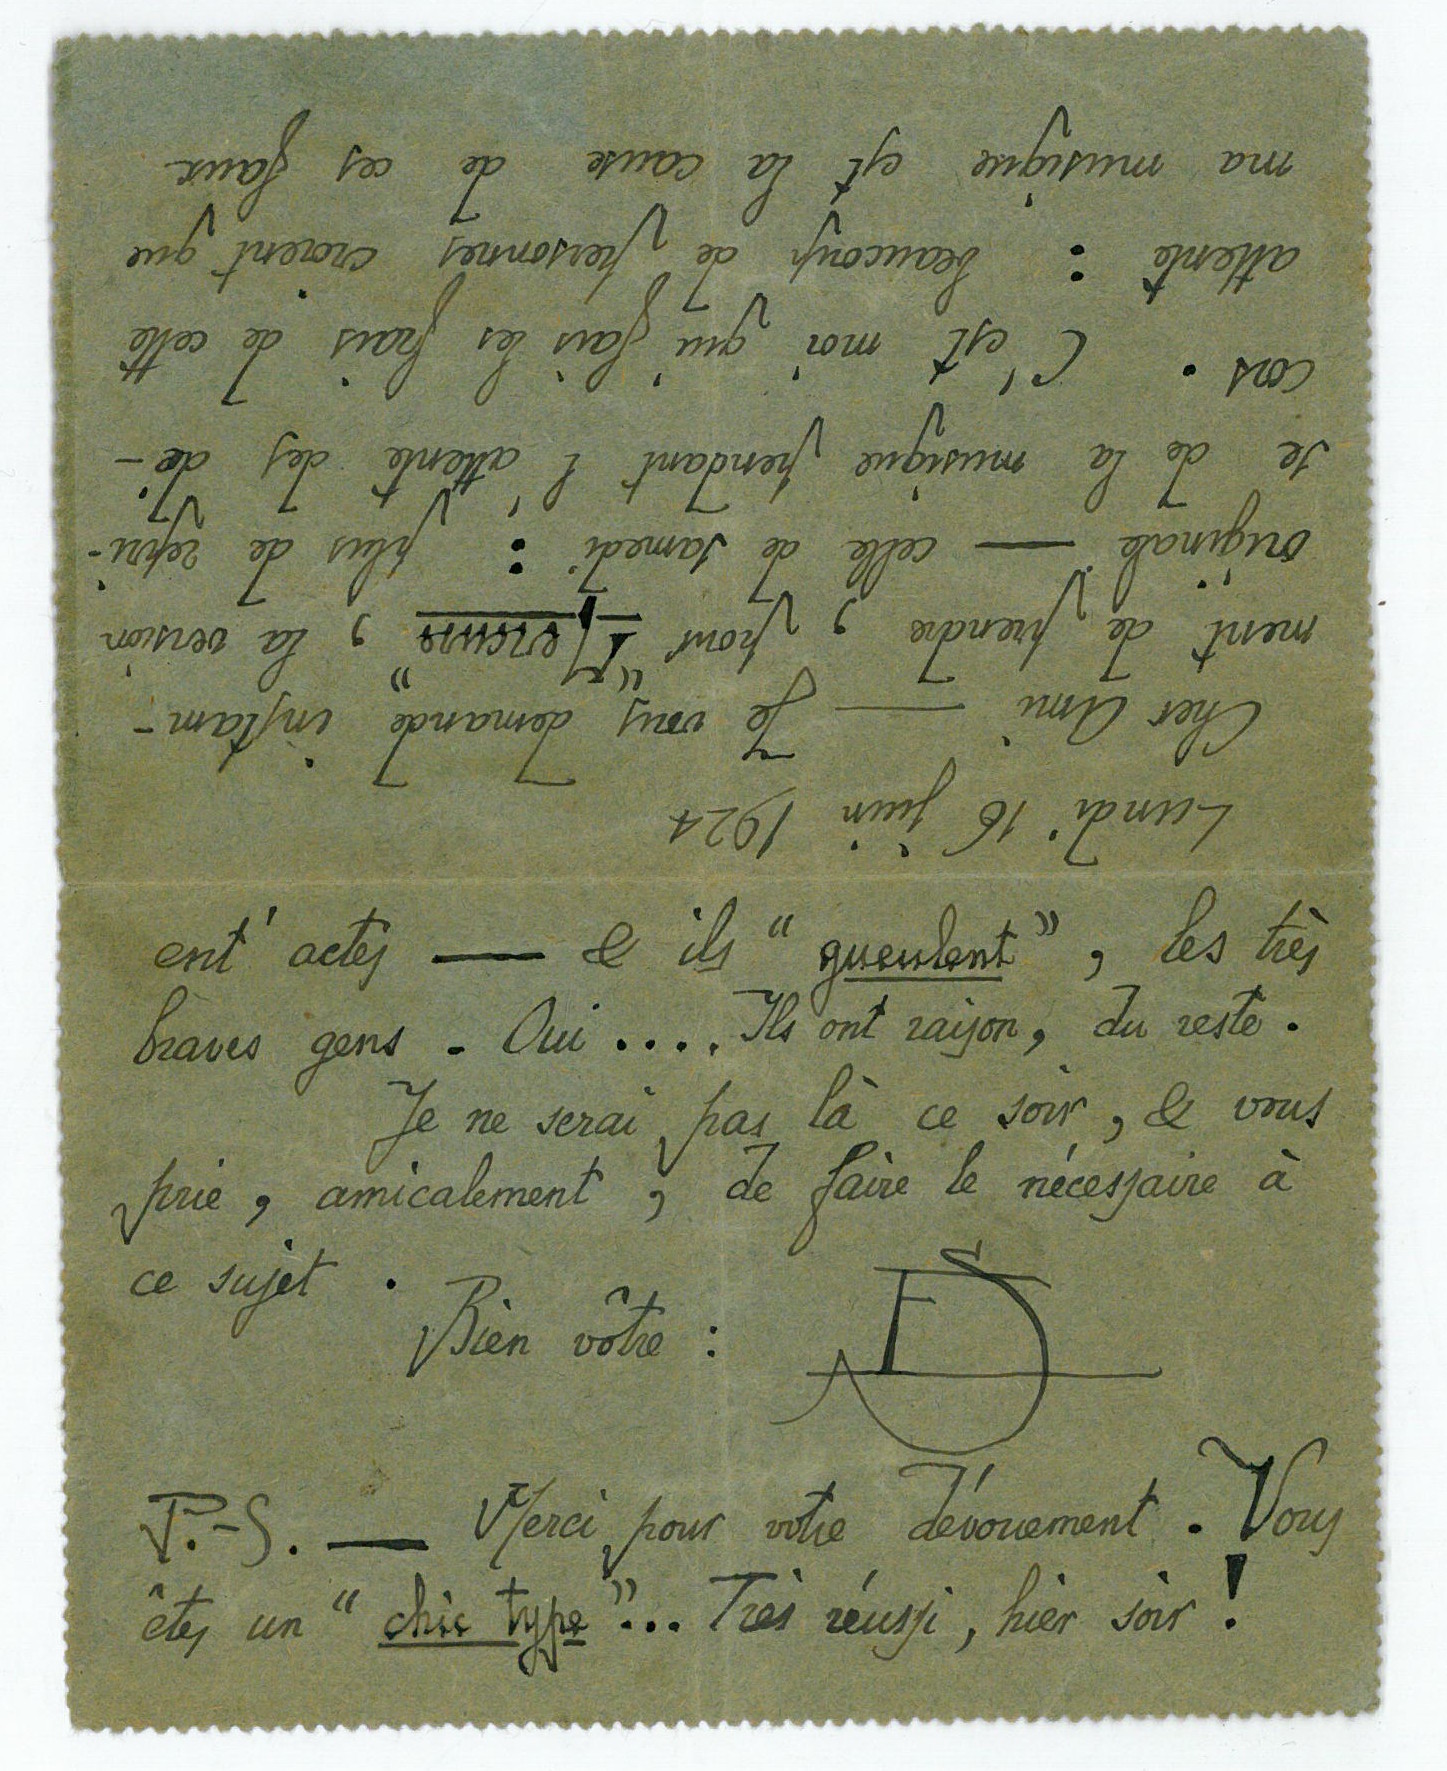 Lundi 16 juin 1924
Cher Ami — Je vous demande instam-
ment de prendre, pour "Mercure", la version
originale — celle de samedi : plus de repri-
se de la musique pendant l'attente des dé-
cors. C'est moi qui fais les frais de cette
attente : beaucoup de personnes croient que
ma musique est la cause de ces faux
ent'actes — & ils "gueulent", les très
braves gens. Oui .... Ils ont raison, du reste.
Je ne serai pas là ce soir, & vous
prie, amicalement, de faire le nécessaire à
ce sujet.
Bien vôtre : ES
P.-S. — Merci pour votre dévouement. Vous
êtes un "chic type"... Très réussi, hier soir !